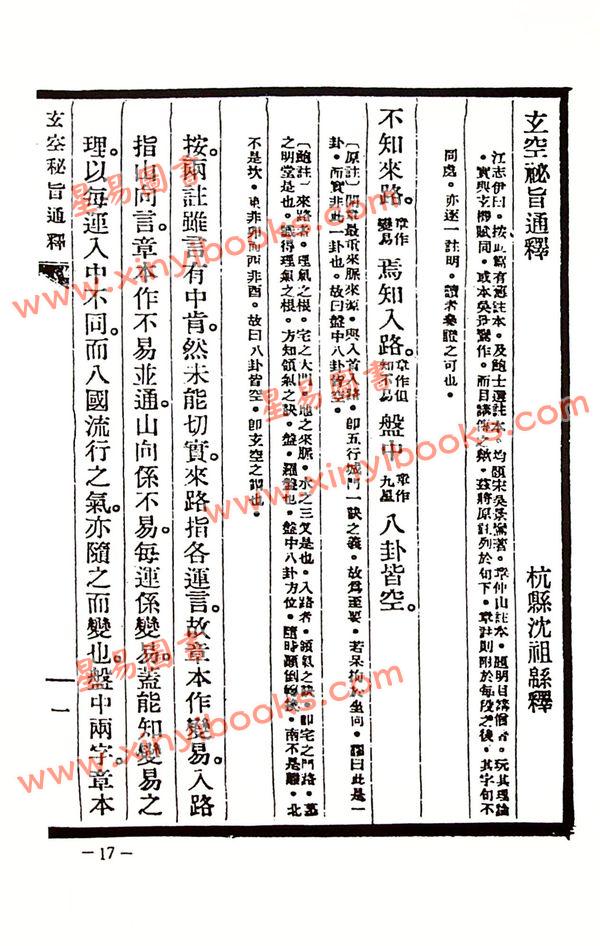 玄空秘旨通釋
杭縣沈祖緜釋
江志伊曰。按此篇有原註本。及鮑士選註本。均題宋吳景鸞著。章仲山註本。題明目講僧著。玩其理論
。實與玄機賦同。或本吳氏舊作。而目講傳之歟。茲將原註列於句下。章註則附於每段之後。其字句不
同處。亦逐一註明。讀者參證之可也。
不知來路。章作變易焉知入路。章作但知不易盤中章作九星八卦皆空。
〔原註〕最重來脈來源。與入首入路。即五行城門一訣之義。故爲至要。若呆拘於坐向。曰此是一
卦。而實非此一卦也。故曰盤中八卦皆空。
〔鮑註〕來路者。理氣之根。宅之大門。地之來脈。水之三叉是也。入路者。領氣之訣。即宅之門路。墓
之明堂是也。識得理氣之根。方知領氣之訣。盤。羅盤也。盤中八卦方位。隨時顛倒。南不是離。北
不是坎。東非卯而西非酉。故曰八卦皆空。即玄空之
按兩註雖言有中肯。然未能切實。來路指各運言。故章本作變易。入路
指山向言。章本作不易並通。山向係不易。每運係變易。蓋能知變易之
理。以每運入中不同。而八國流行之氣。亦隨之而變也。盤中兩字。章本
玄空秘旨通釋
一
—17—
星易圖書
www.xinyibooks.com
星易圖書
www.xinyibooks.com
星易圖書
www.xinyibooks.com
星易圖書
www.xinyibooks.com